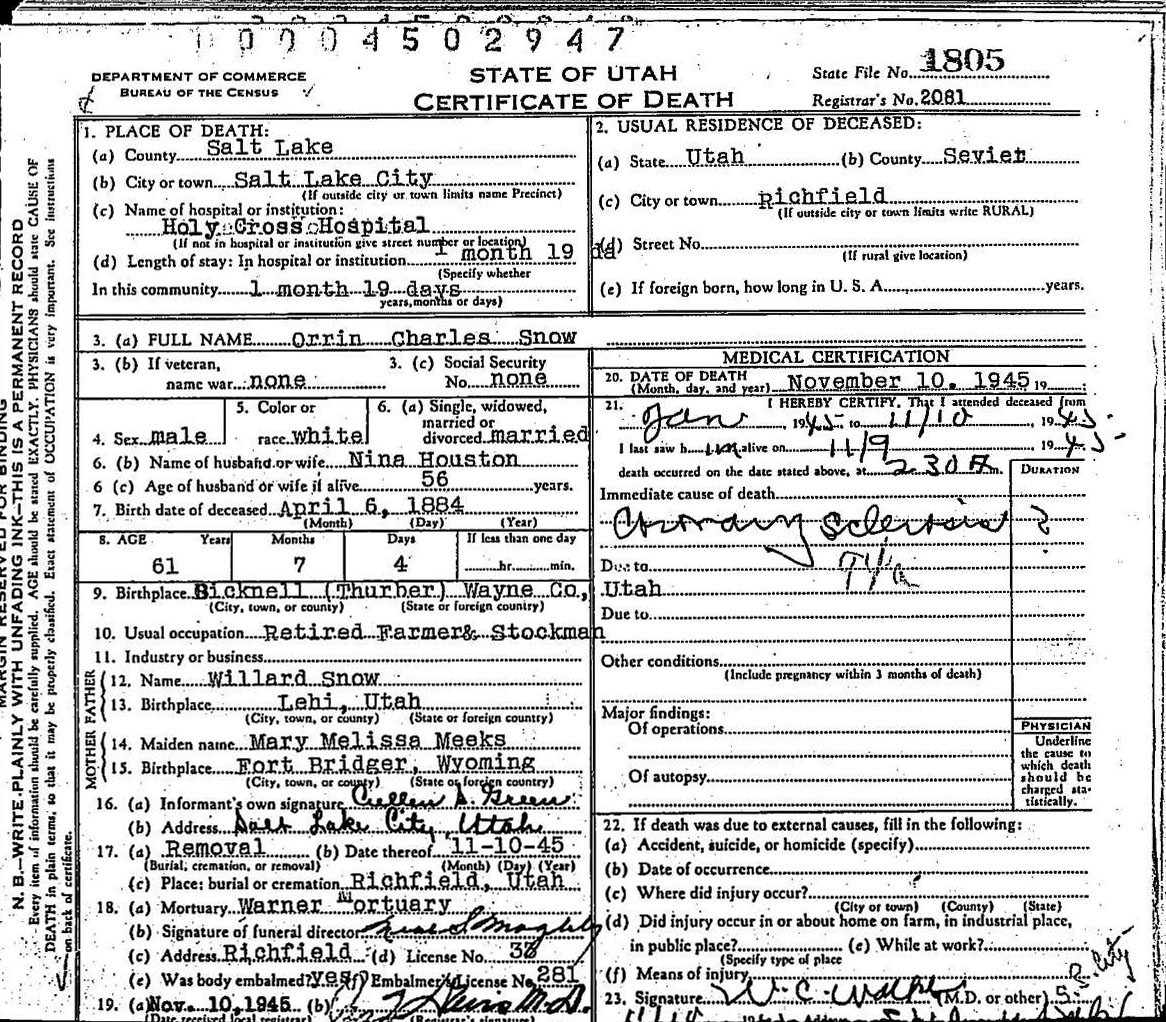 0004502947
DEPARTMENT OF COMMERCE
BUREAU OF THE CENSUS
STATE OF UTAH
CERTIFICATE OF DEATH
State File No. 1805
Registrar's No. 2081
1. PLACE OF DEATH:
(a) County Salt Lake
(b) City or town Salt Lake City
(If outside city or town limits name Precinct)
(c) Name of hospital or institution:
Holy Cross Hospital
(If not in hospital or institution give street number or location)
(d) Length of stay: In hospital or institution 1 month 19 da
(Specify whether
In this community 1 month 19 days
years, months or days)
2. USUAL RESIDENCE OF DECEASED:
(a) State Utah (b) County Sevier
(c) City or town Richfield
(If outside city or town limits write RURAL)
(d) Street No.
(If rural give location)
(e) If foreign born, how long in U. S. A. years.
3. (a) FULL NAME Orrin Charles Snow
3. (b) If veteran, 3. (c) Social Security
name war none No. none
5. Color or 6. (a) Single, widowed,
married or
4. Sex male race white divorced married
6. (b) Name of husband or wife Nina Houston
6 (c) Age of husband or wife if alive 56 years.
7. Birth date of deceased April 6, 1884
(Month) (Day) (Year)
8. AGE Years Months Days If less than one day
61 7 4 hr. min.
9. Birthplace Bicknell (Thurber) Wayne Co., Utah
(City, town, or county) (State or foreign country)
10. Usual occupation Retired Farmer& Stockman
11. Industry or business
FATHER
12. Name Willard Snow
13. Birthplace Lehi, Utah
(City, town, or county) (State or foreign country)
MOTHER
14. Maiden name Mary Melissa Meeks
15. Birthplace Fort Bridger, Wyoming
(City, town, or county) (State or foreign country)
16. (a) Informant's own signature Cullen S. Green
(b) Address Salt Lake City, Utah
17. (a) Removal (b) Date thereof 11-10-45
(Burial, cremation, or removal) (Month) (Day) (Year)
(c) Place: burial or cremation Richfield, Utah
18. (a) Mortuary Warner Mortuary
(b) Signature of funeral director
(c) Address Richfield (d) License No. 33
(e) Was body embalmed? yes (f) Embalmer's License No. 281
19. (a) Nov. 10, 1945 (b) M.D.
(Date received local registrar) (Registrar's signature)
MEDICAL CERTIFICATION
20. DATE OF DEATH
(Month, day, and year) November 10. 1945 19
21. I HEREBY CERTIFY, That I attended deceased from
Jan, 1945 to 11/10, 1945
I last saw him alive on 11/9 1945
death occurred on the date stated above, at 2 30 A m.
DURATION
Immediate cause of death
Coronary Sclerosis ?
Due to
Due to
Other conditions
(Include pregnancy within 3 months of death)
Major findings:
Of operations
Of autopsy
PHYSICIAN
Underline
the cause to
which death
should be
charged sta-
tistically.
22. If death was due to external causes, fill in the following:
(a) Accident, suicide, or homicide (specify)
(b) Date of occurrence
(c) Where did injury occur?
(City or town) (County) (State)
(d) Did injury occur in or about home on farm, in industrial place,
in public place? (e) While at work?
(Specify type of place
(f) Means of injury
23. Signature W C (M.D. or other)
11/10
MARGIN RESERVED FOR BINDING
N. B.—WRITE PLAINLY WITH UNFADING INK—THIS IS A PERMANENT RECORD
Every item of information should be carefully supplied. AGE should be stated EXACTLY. PHYSICIANS should state CAUSE OF
DEATH in plain terms, so that it may be properly classified. Exact statement of OCCUPATION is very important. See instructions
on back of certificate.